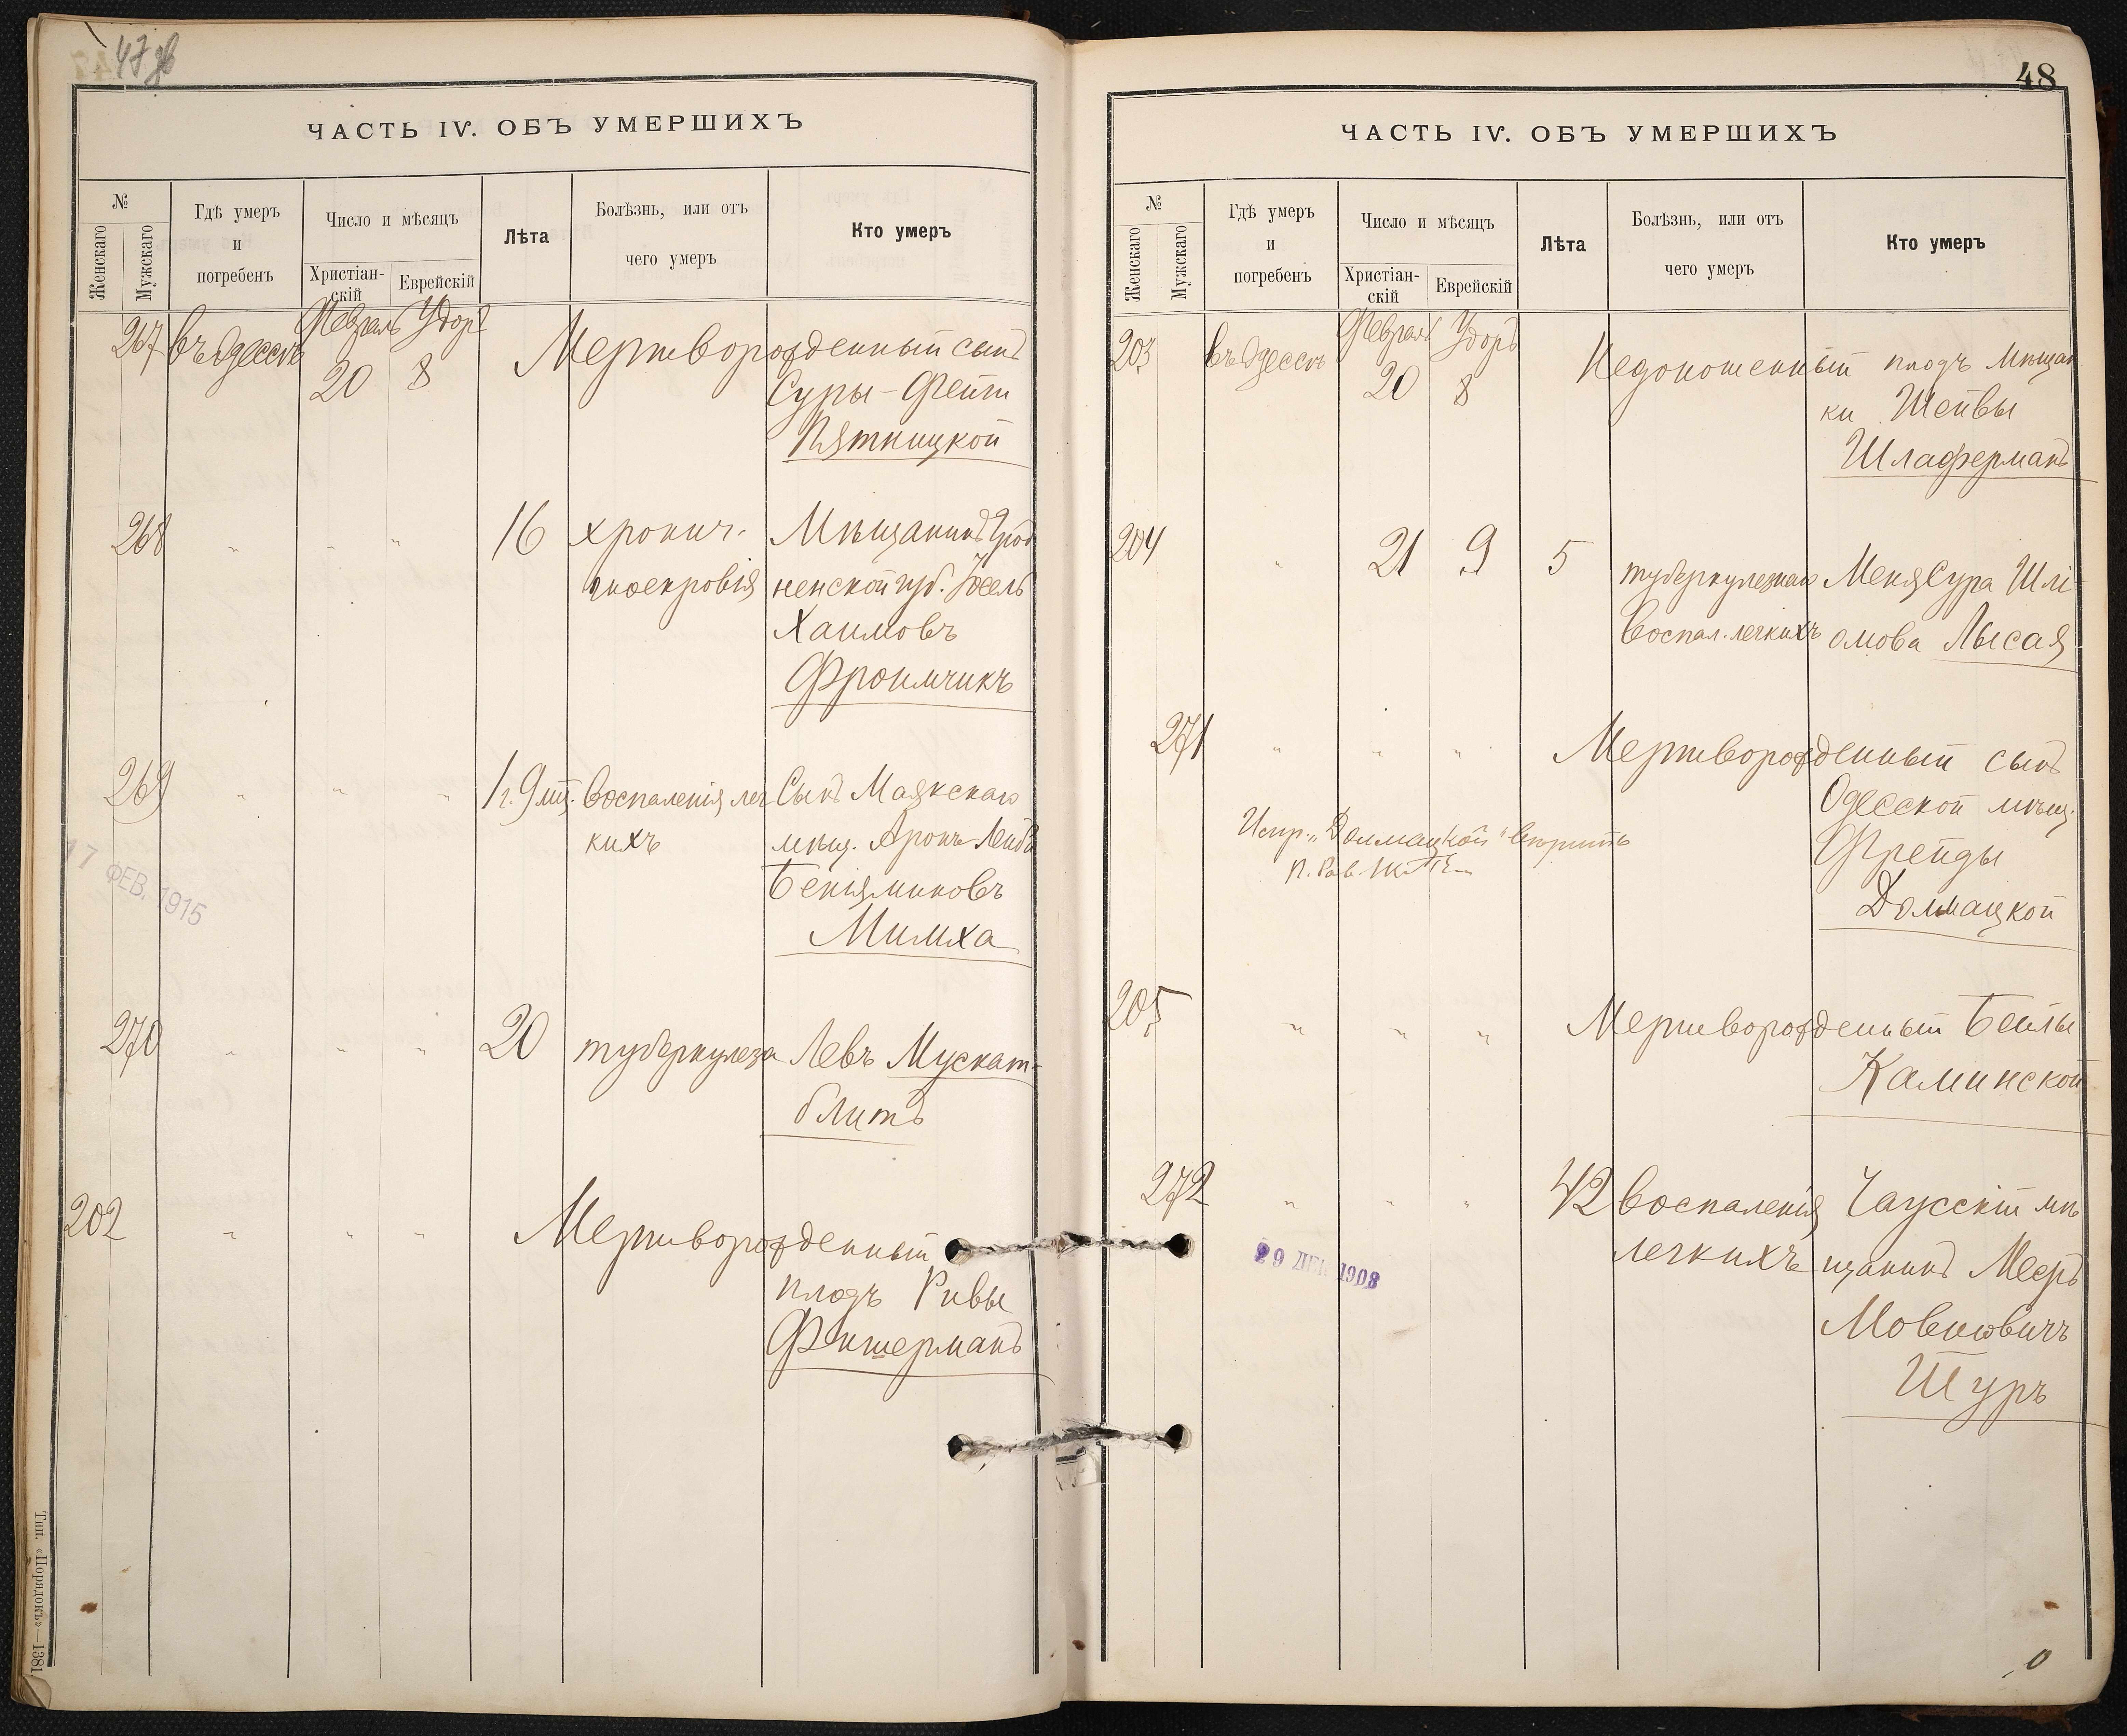 47 об
ЧАСТЬ IV. ОБЪ УМЕРШИХЪ
№
Женскаго
Мужскаго
Гдѣ умеръ
и
погребенъ
Число и мѣсяцъ
Христіан-
скій
Еврейскій
Лѣта
Болѣзнь, или отъ
чего умеръ
Кто умеръ
267 въ Одессѣ Февраль 20 Удоръ 8 Мертворожденный сынъ
Суры-Фейги
Пятницкой
268 " " " 16 хронич. Мѣщанинъ Грод
гноекровія ненской губ. Іосель
Хаимовъ
Фроимчикъ
269 " " " 1 г. 9 мѣс. воспаленія лег Сынъ Маякскаго
кихъ мѣщ. Аронъ Лейба
Беніяминовъ
Мимха
17 ФЕВ. 1915
270 " " " 20 туберкулеза Левъ Мускат-
блитъ
202 " " " Мертворожденный
плодъ Ривы
Фишерманъ
Тип. «Порядокъ»—1381
48
ЧАСТЬ IV. ОБЪ УМЕРШИХЪ
№
Женскаго
Мужскаго
Гдѣ умеръ
и
погребенъ
Число и мѣсяцъ
Христіан-
скій
Еврейскій
Лѣта
Болѣзнь, или отъ
чего умеръ
Кто умеръ
203 въ Одессѣ Февраль 20 Удоръ 8 Недоношенный плодъ Мѣщан
ки Шейвы
Шлаферманъ
204 " 21 9 5 туберкулезнаго Меня Сура Шлі
воспал. легкихъ омова Лысая
271 " " " Мертворожденный сынъ
Одесской мѣщ.
Фрейды
Долмацкой
Испр. "Долмацкой" вѣрить
205 " " " Мертворожденный Бейлы
Каминской
272 " " " 42 воспаленія Чаусскій мѣ
легкихъ щанинъ Мееръ
Мовшовичъ
Шуръ
29 ДЕК 1908